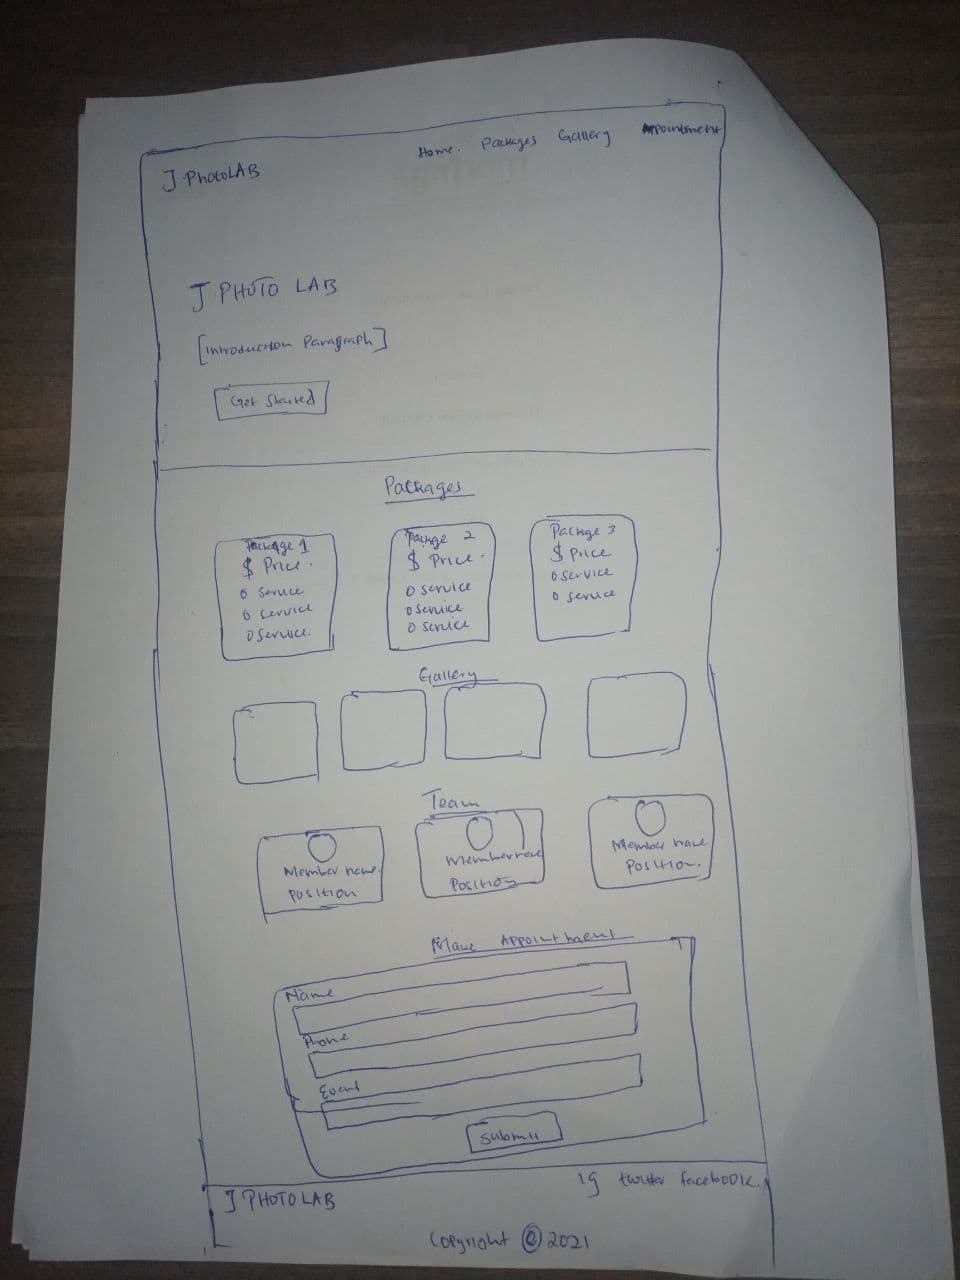 J PhotoLAB
Home. Packages Gallery Appointment
J PHOTO LAB
[Introduction Paragraph]
Get Started
Packages
Package 1
$ Price.
o Service
o service
o Service.
Package 2
$ Price.
o service
o service
o service
Package 3
$ Price
o service
o service
Gallery
Team
Member name
Position
Member name
Position
Member name
Position.
Make Appointment
Name
Phone
Event
Submit
J PHOTO LAB
ig twitter facebook.
Copyright © 2021